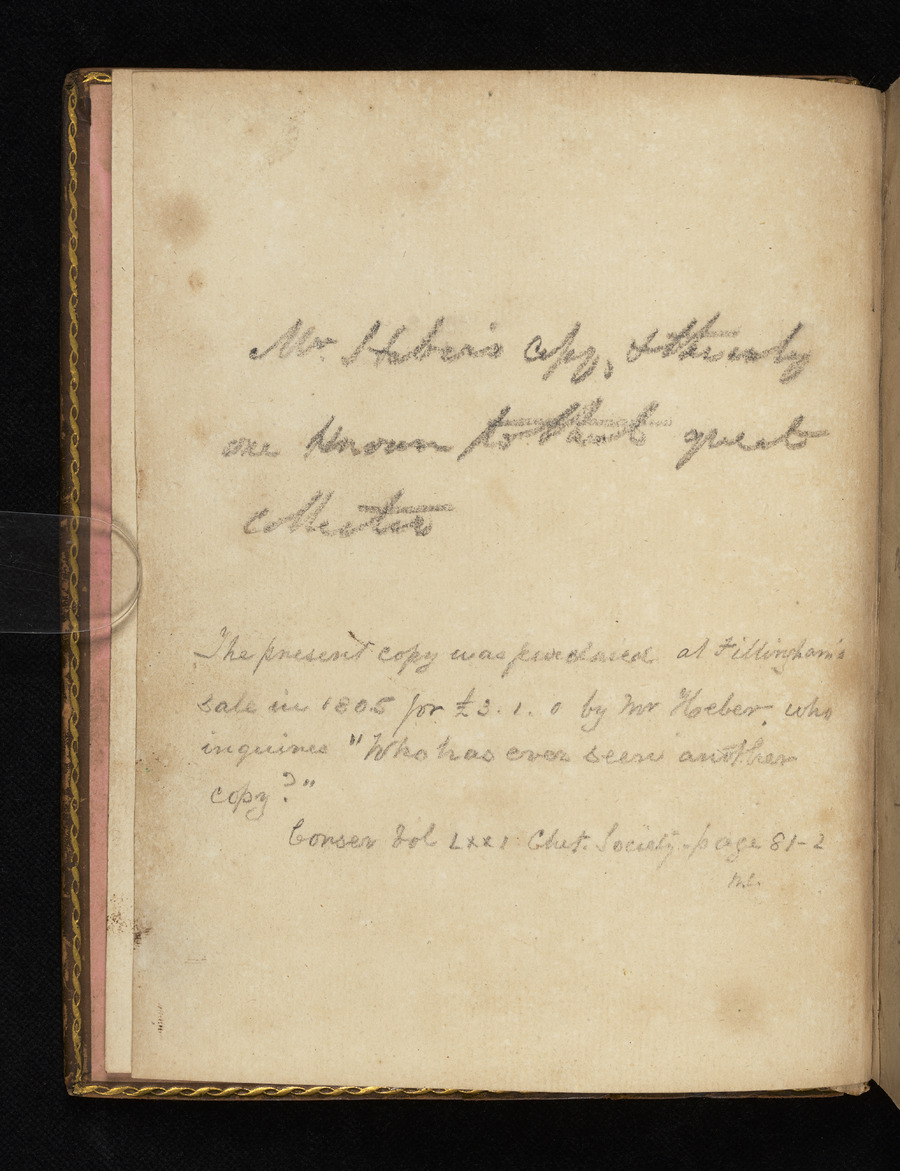 Mr. Heber's copy, & the only
one known to that great
collector
The present copy was purchased at Fillingham's
sale in 1805 for £3. 1. 0 by Mr Heber, who
inquires "Who has ever seen another
copy?"
Corser Vol LXXI Chet. Society. page 81-2